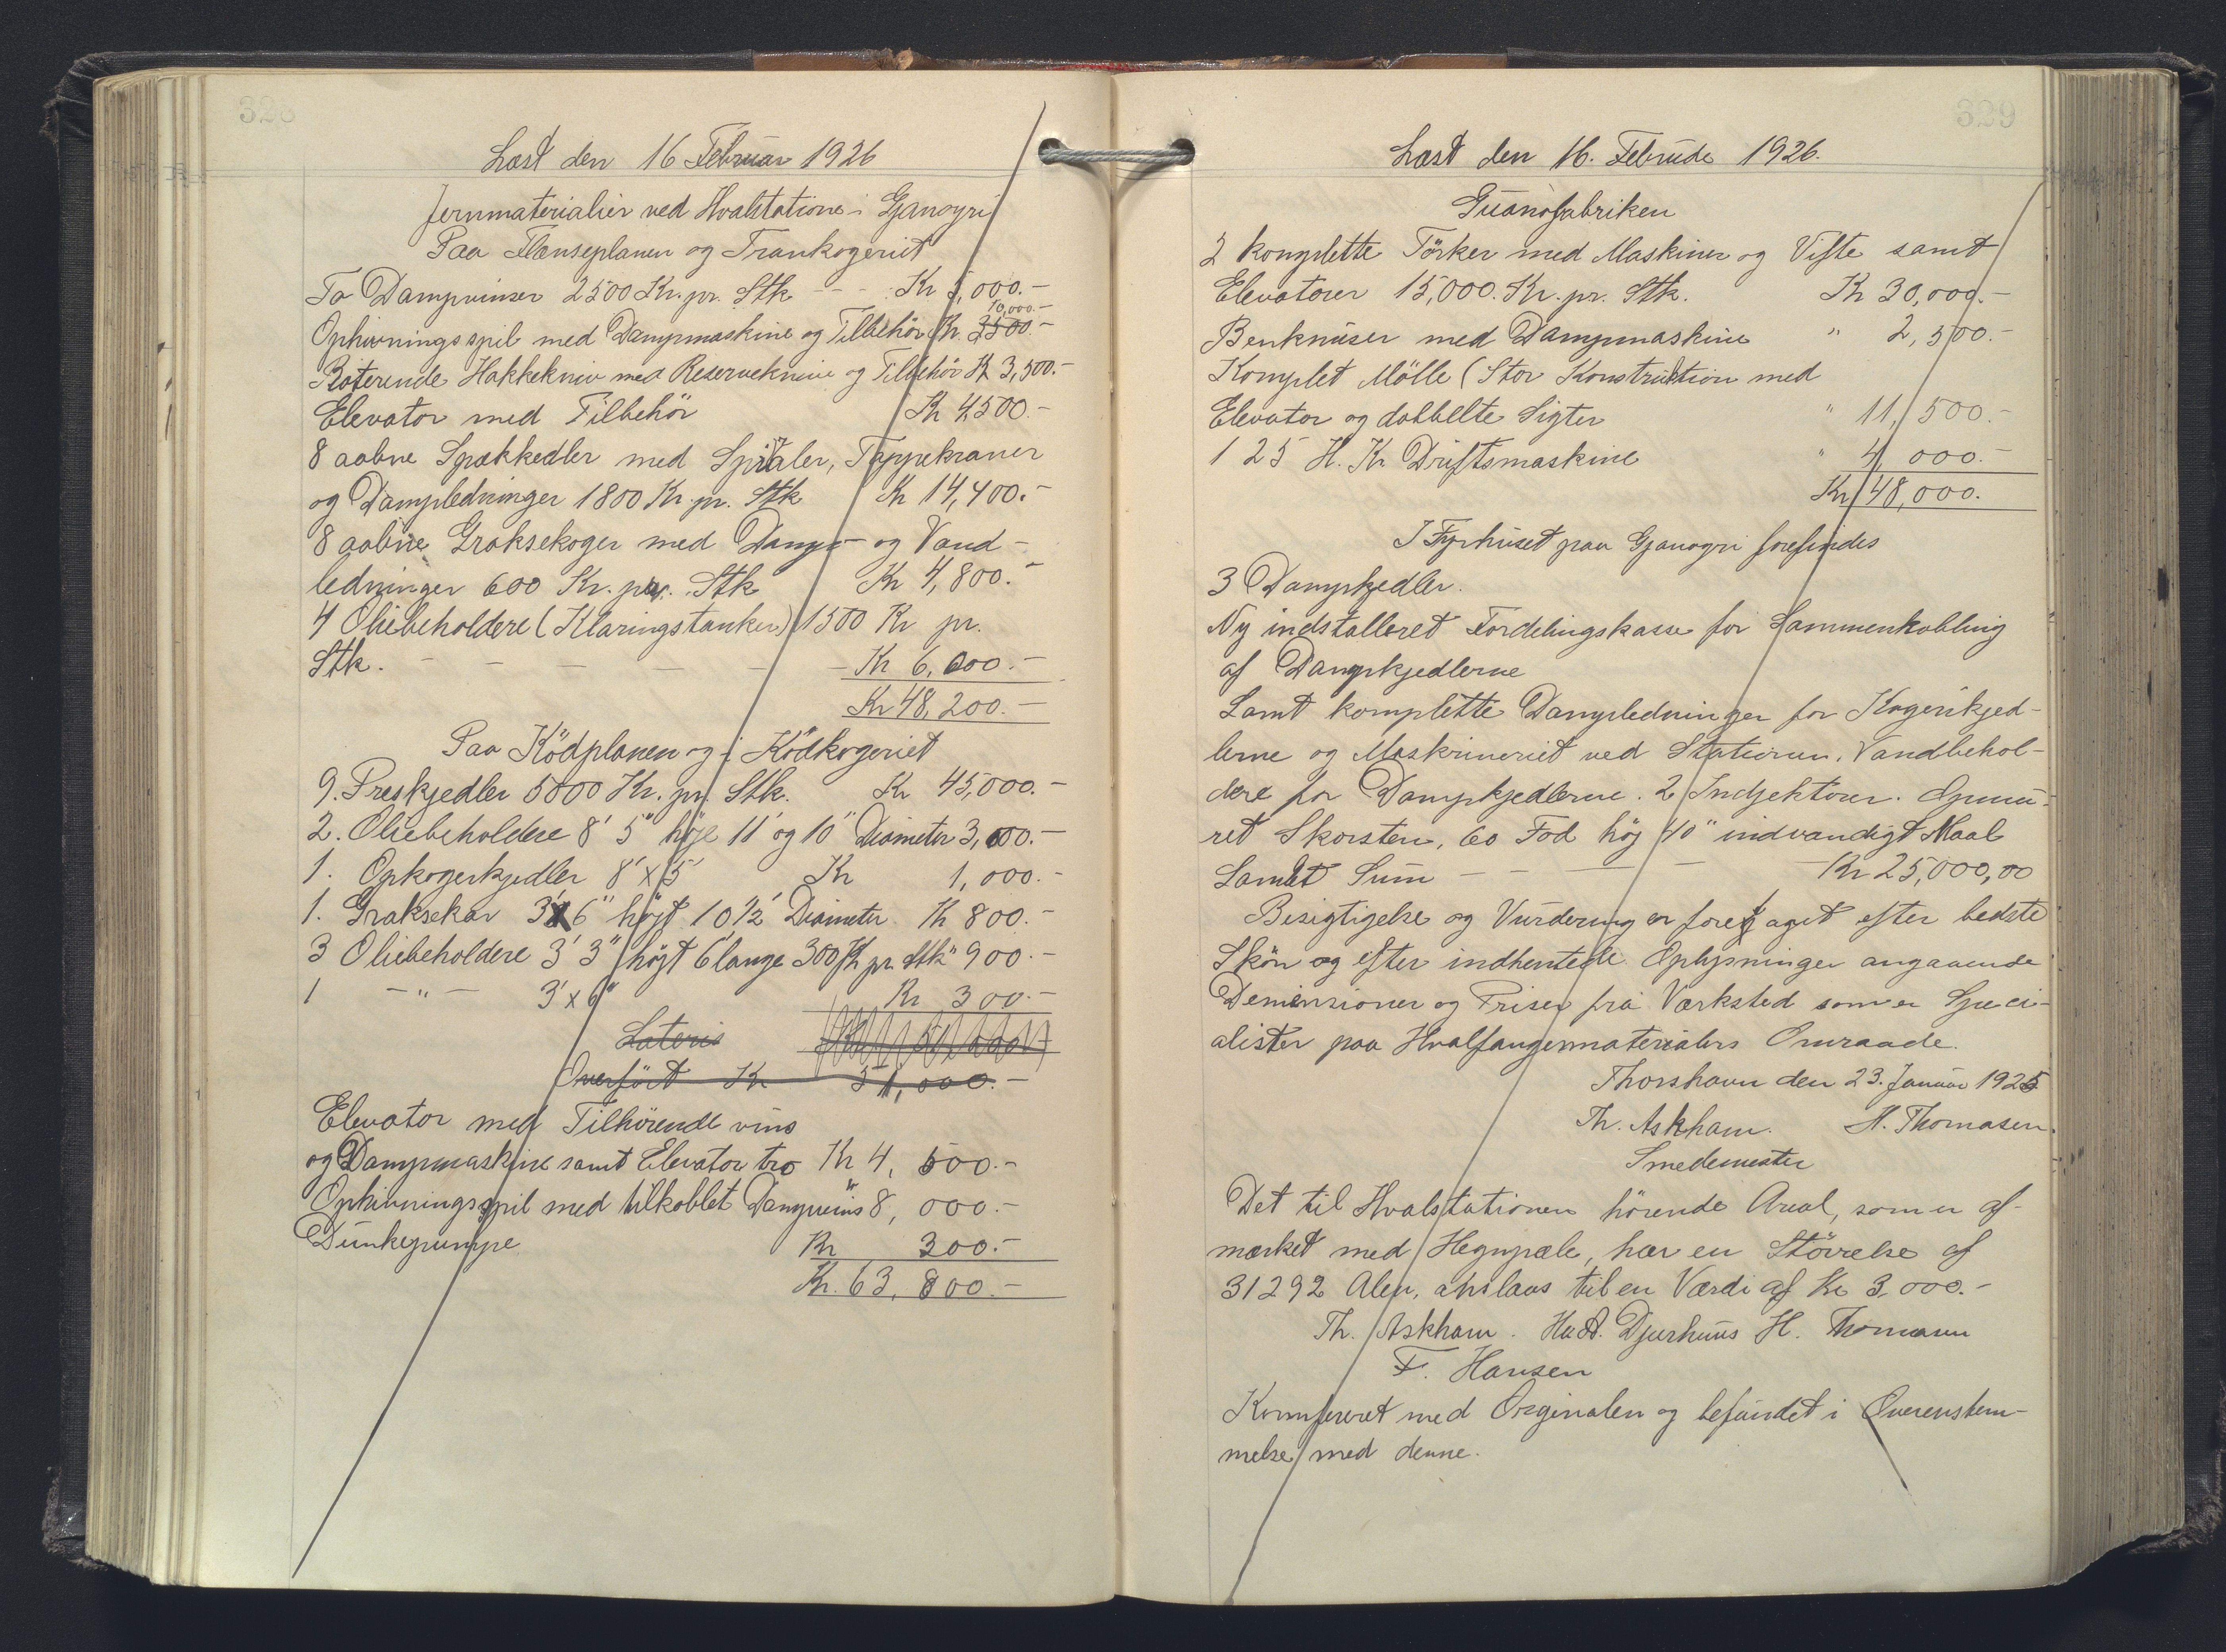 328
Læst den 16 Februar 1926
Jernmaterialier ved Hvalstatione i Gjanoyri
Paa Flænseplanen og Trankogeriet
To Dampvinser 2500 Kr. pr. Stk - - Kr 5,000.-
10,000.-
Ophivningsspil med Dampmaskine og Tilbehör Kr. 3500.-
Roterende Hakkekniv med Reserveknive og Tilbehör Kr 3,500.-
Elevator med Tilbehör Kr 4,500.-
8 aabne Spækkedler med Spiraler, Tappekraner
og Dampledninger 1800 Kr. pr. Stk Kr 14,400.-
8 aabne Graksekoger med Damp- og Vand-
ledninger 600 Kr. pr. Stk Kr 4,800.-
4 Oliebeholdere (Klaringstanker) 1500 Kr pr.
Stk. - - - - - - Kr 6,000.-
Kr 48,200.-
Paa Ködplanen og i Ködkogeriet
9. Preskjedler 5000 Kr. pr. Stk. Kr 45,000.-
2. Oliebeholdere 8' 5" höje 11' og 10" Diameter 3,000.-
1. Opkogerkjedler 8' x 5' Kr 1,000.-
1. Graksekar 3' x 6" höjt 10 1/2' Diameter Kr 800.-
3 Oliebeholdere 3' 3" höjt 6' lange 300 Kr pr Stk " 900.-
1 -"- 3' x 6" Kr 300.-
Lateris
Overfört Kr 51,000.-
Elevator med Tilhörende vins
og Dampmaskine samt Elevator tro Kr 4,500.-
Ophivningsspil med tilkoblet Dampvins " 8,000.-
Dunkepumpe Kr 300.-
Kr. 63,800.-
329
Læst den 16. Februde 1926.
Guanofabriken
2 komplette Törker med Maskiner og Vifte samt
Elevatorer 15,000. Kr. pr. Stk. Kr 30,000.-
Benknuser med Dampmaskine " 2,500.-
Komplet Mölle (Stor Konstruktion med
Elevator og dobbelte Sigter " 11,500.-
1 25 H. Kr Driftsmaskine " 4,000.-
Kr 48,000.
I Fyrhuset paa Gjanoyri forefindes
3 Dampkjedler.
Ny indstalleret Fordelingskasse for Sammenkobling
af Dampkjedlerne
Samt komplette Dampledninger for Kogerikjed-
lerne og Maskineriet ved Stationen. Vandbehol-
dere for Dampkjedlerne. 2 Indjektorer. Opmu-
ret Skorsten, 60 Fod höj 40" indvandigt Maal
Samlet Sum - - - - - Kr 25,000,00
Besigtigelse og Vurdering er foretaget efter bedste
Skön og efter indhentede Oplysninger angaaende
Demensioner og Priser fra Værksted som er Speci-
alister paa Hvalfangermaterialers Omraade.
Thorshavn den 23. Januar 1926
Th. Askham. H. Thomasen.
Smedemester
Det til Hvalstationen hörende Areal, som er af-
mærket med Hegnpæle, har en Störrelse af
31292 Alen, anslaas til en Værdi af Kr 3,000.-
Th. Askham. Djurhuus H. Thomasen
F. Hansen
Komfereret med Orginalen og befundet i Overenstem-
melse med denne.